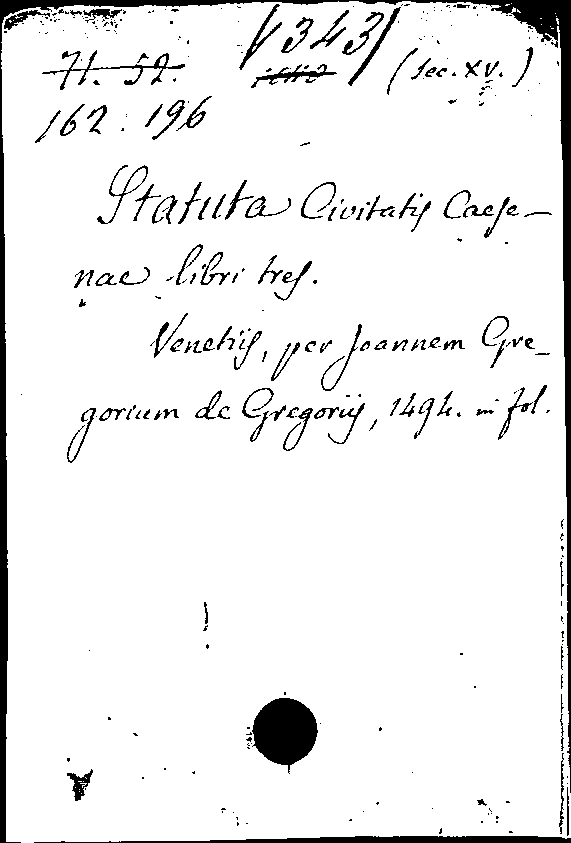 V 343
71. 52. (sec. XV.)
162. 196
Statuta Civitatis Caese-
nae libri tres.
Venetiis, per Joannem Gre-
gorium de Gregoriis, 1494. in fol.